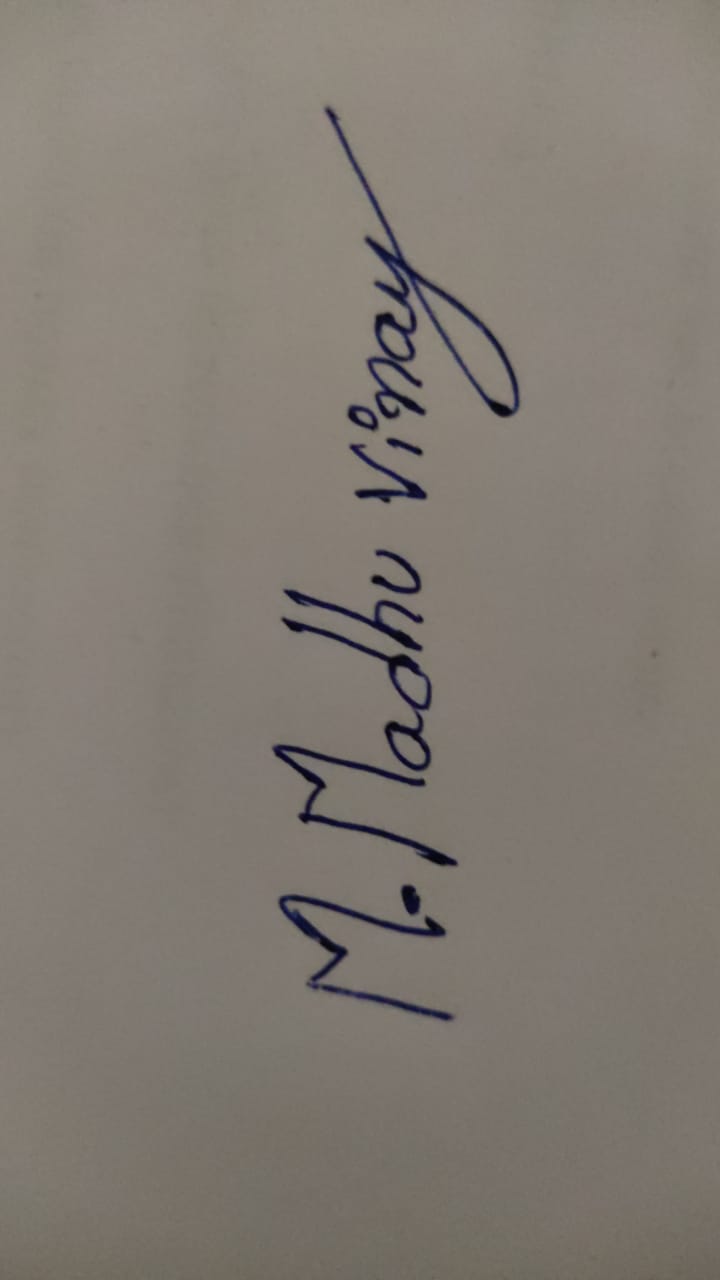 M. Madhu vinay